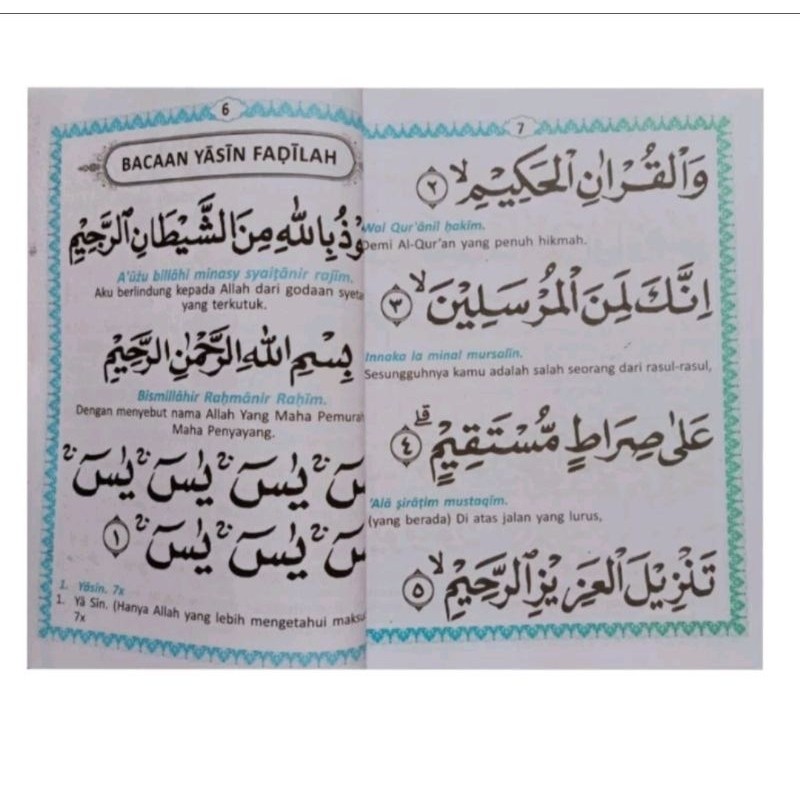 6
BACAAN YĀSĪN FAḌĪLAH
بِاللّٰهِ مِنَ الشَّيْطَانِ الرَّجِيْمِ
A'ūżu billāhi minasy syaiṭānir rajīm.
Aku berlindung kepada Allah dari godaan
yang terkutuk.
بِسْمِ اللّٰهِ الرَّحْمٰنِ الرَّحِيْمِ
Bismillāhir Raḥmānir Raḥīm.
Dengan menyebut nama Allah Yang Maha
Maha Penyayang.
يٰسۤ يٰسۤ يٰسۤ
يٰسۤ يٰسۤ ١
1. Yāsīn. 7x
1. Yā Sīn. (Hanya Allah yang lebih mengetahui
7x
7
وَالْقُرْاٰنِ الْحَكِيْمِۙ ٢
Wal Qur'ānil ḥakīm.
Demi Al-Qur'an yang penuh hikmah.
اِنَّكَ لَمِنَ الْمُرْسَلِيْنَۙ ٣
Innaka la minal mursalīn.
Sesungguhnya kamu adalah salah seorang dari rasul-rasul,
عَلٰى صِرَاطٍ مُّسْتَقِيْمٍۗ ٤
'Alā ṣirāṭim mustaqīm.
(yang berada) Di atas jalan yang lurus,
تَنْزِيْلَ الْعَزِيْزِ الرَّحِيْمِۙ ٥